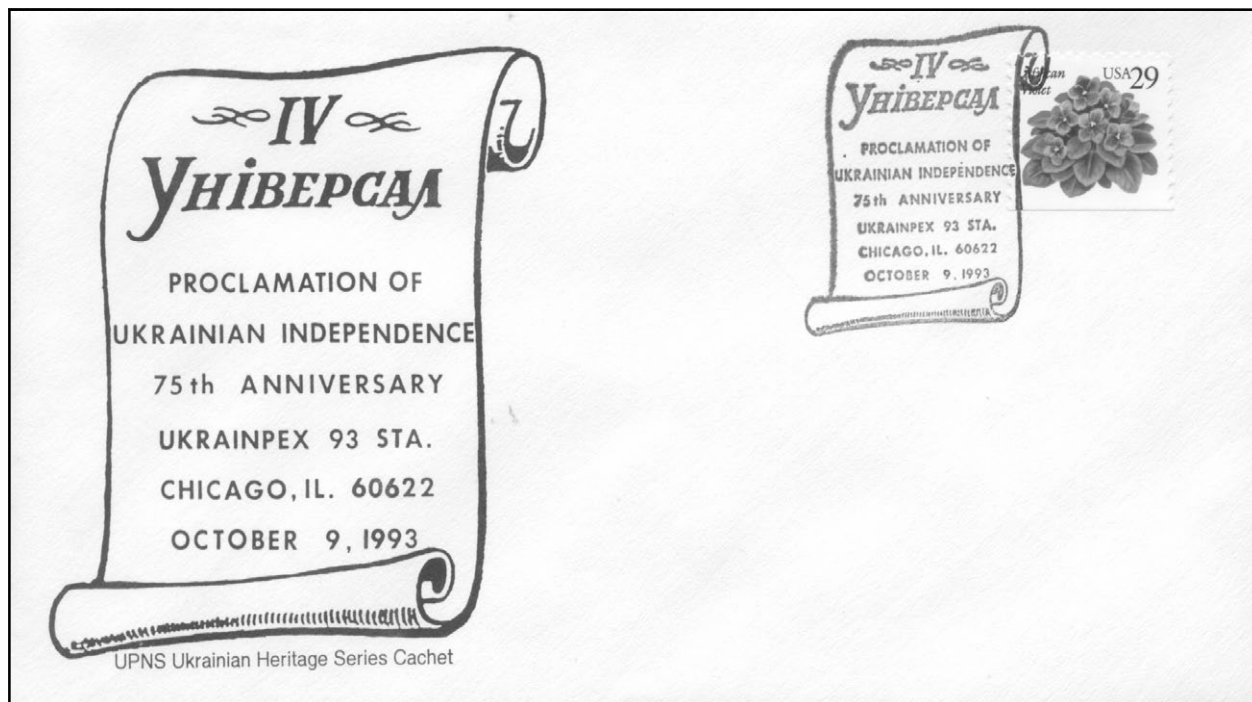 IV
УНІВЕРСАЛ
PROCLAMATION OF
UKRAINIAN INDEPENDENCE
75th ANNIVERSARY
UKRAINPEX 93 STA.
CHICAGO, IL. 60622
OCTOBER 9, 1993
UPNS Ukrainian Heritage Series Cachet
IV
УНІВЕРСАЛ
PROCLAMATION OF
UKRAINIAN INDEPENDENCE
75th ANNIVERSARY
UKRAINPEX 93 STA.
CHICAGO, IL. 60622
OCTOBER 9, 1993
African
Violet
USA 29